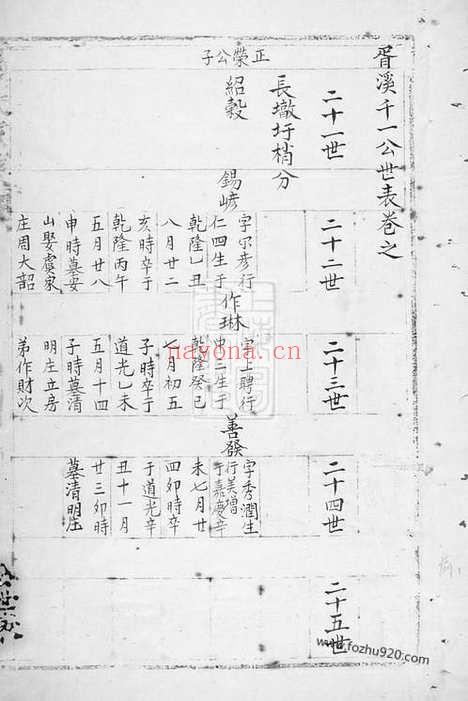 胥溪千一公世表卷之
二十一世
二十二世
二十三世
二十四世
二十五世
長墩圩梢分
正榮公子
紹穀
錫嵃
字宗彦行
仁四生于
乾隆乙丑
八月廿二
亥時卒于
乾隆丙午
五月廿八
申時墓安
山娶虞家
庄周大韶
作琳
字上聘行
忠二生于
乾隆癸巳
七月初五
子時卒于
道光乙未
五月十四
子時墓清
明庄立房
弟作財次
善發
字秀潤生
行美增
于嘉慶辛
未七月廿
四卯時卒
于道光辛
丑十一月
廿三卯時
墓清明庄
nayona.cn
www.fozhu920.com